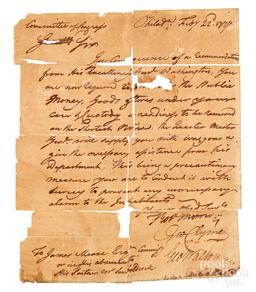 Committee of Congress
Philadᵃ Feby 22. 1777
Sir
In Consequence of a recommendation
from His Excellency Genl Washington, You
are now required to The Public
Money, Goods Stores under your
care & Custody in readiness to be removed
on the Shortest Notice. The Quarter Master
Genl. will supply you with waggons &
the necessary assistance from his
department. This being a precautionary
measure you are to conduct it with
Secrecy to prevent any unnecessary
alarm to the Inhabitants
Robt Morris
Geo Clymer
Geo Walton
To James Mease Esqr
or in his absence to
POOK & POOK inc.